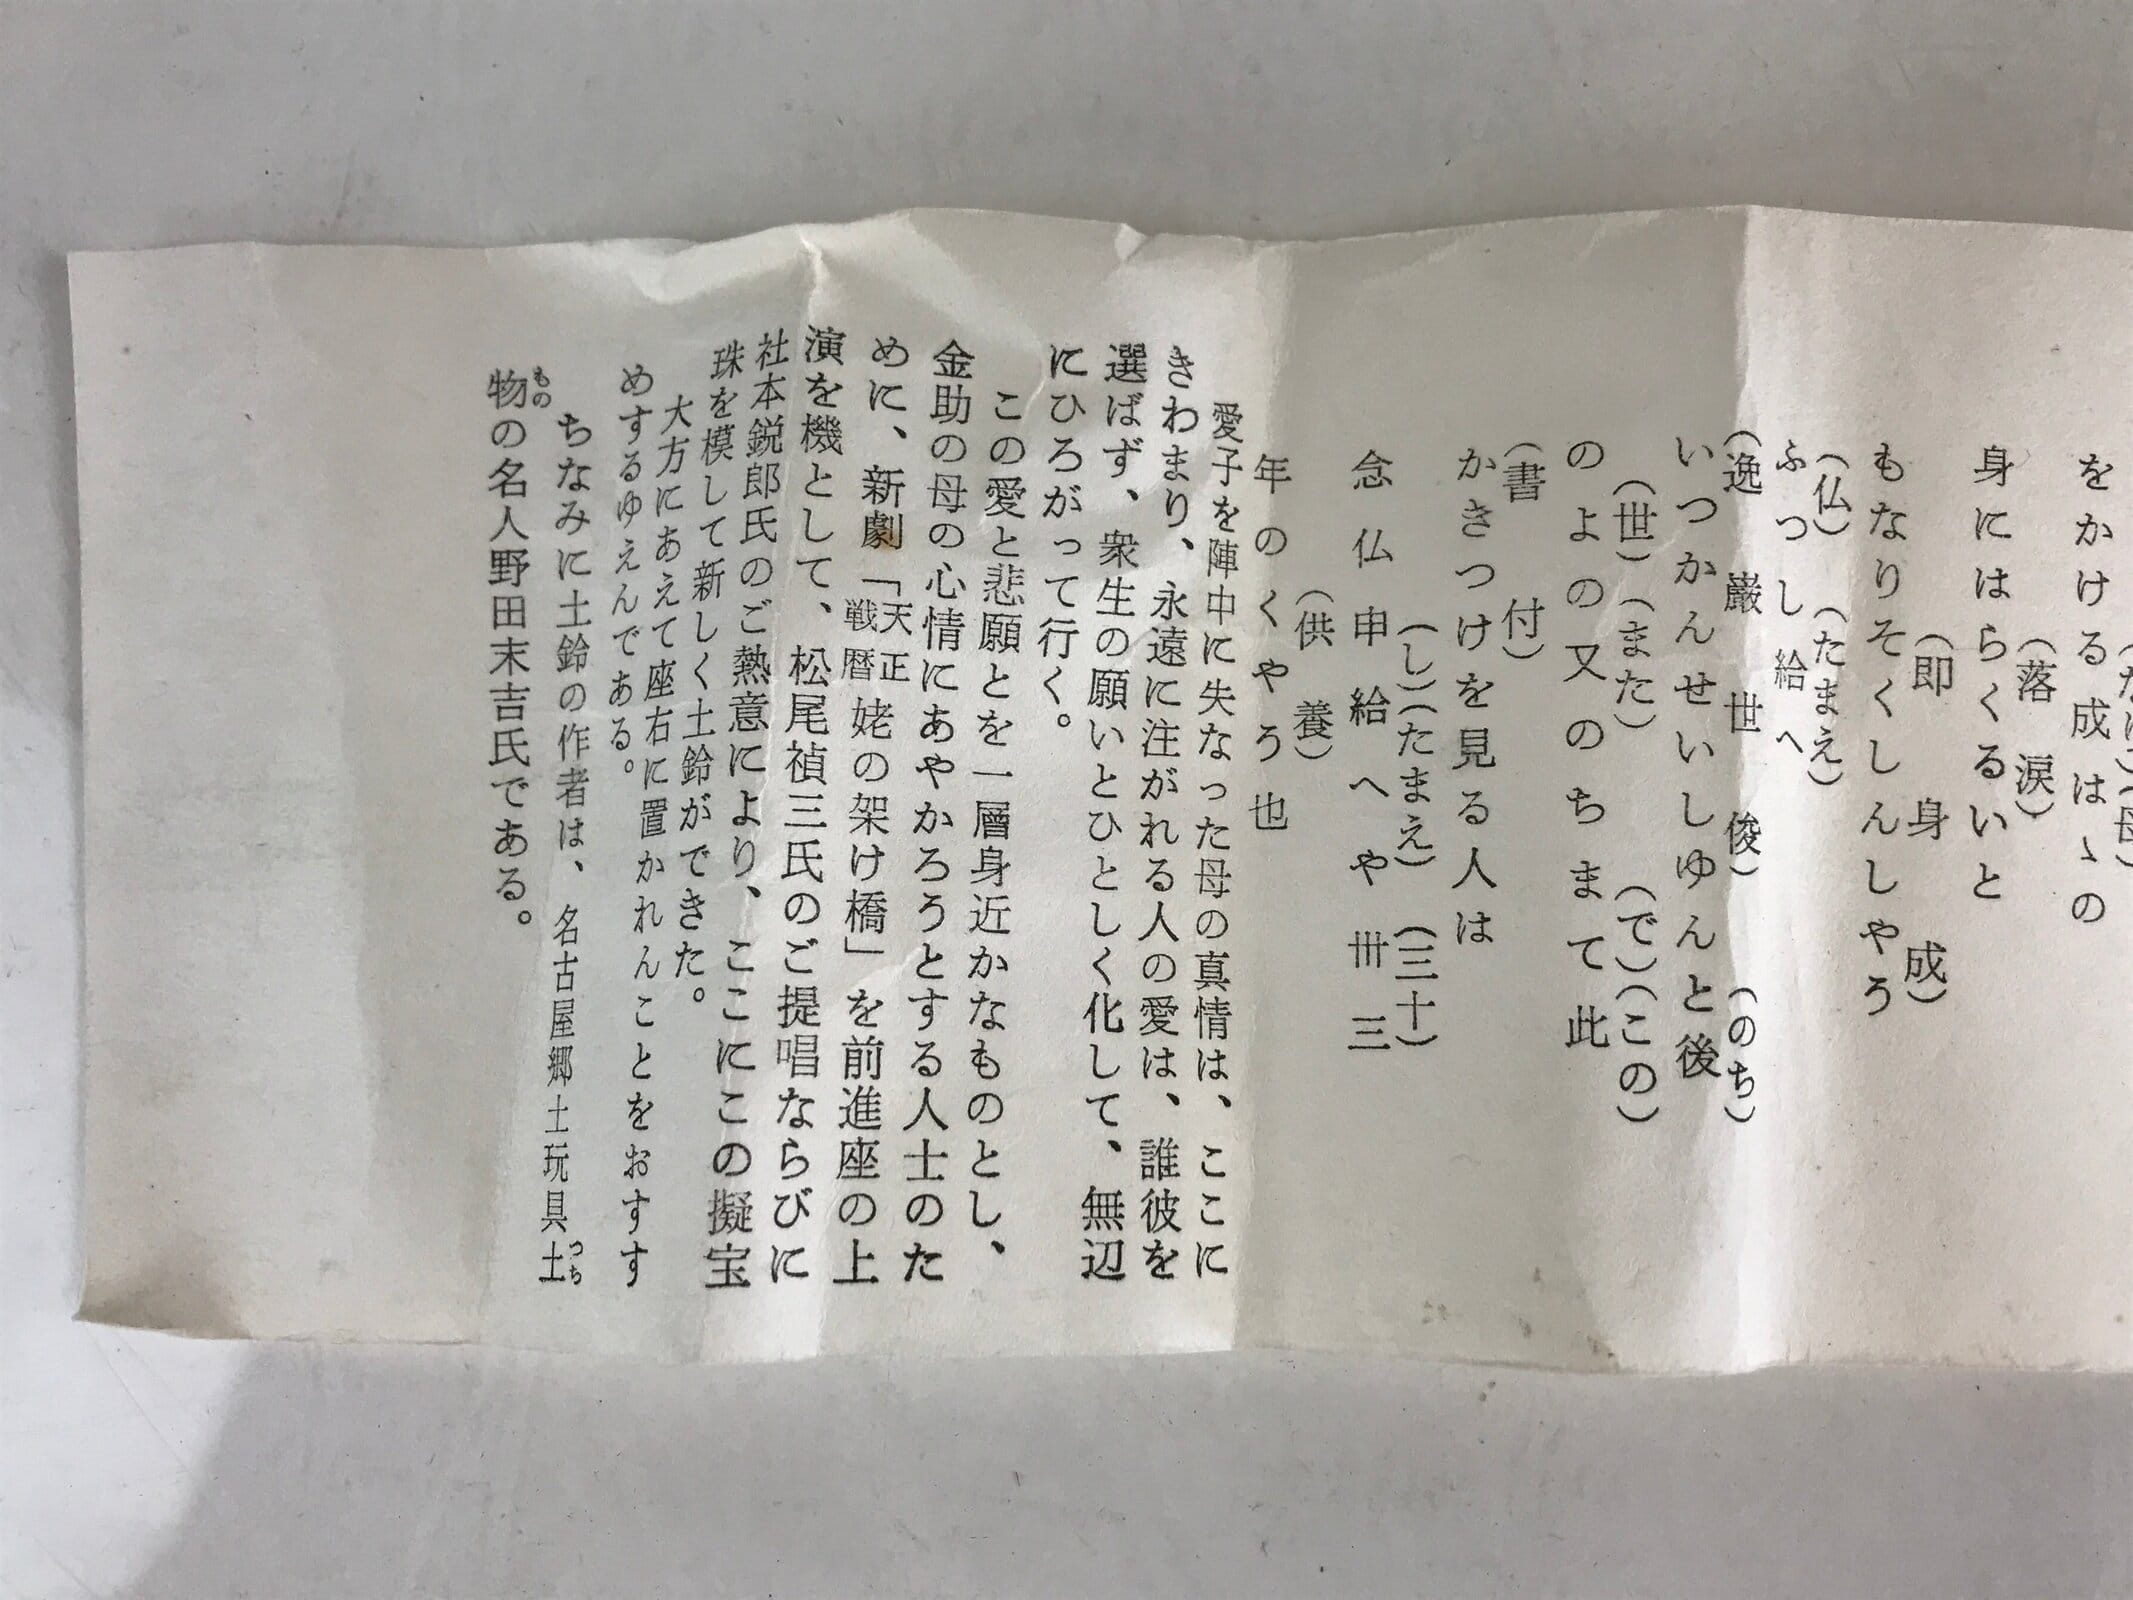 をかける成はゝの
(落涙)
身にはらくるいと
(即身成)
もなりそくしんしやう
(仏)(たまえ)
ふつし給へ
(逸巌世俊)(のち)
いつかんせいしゆんと後
(世)(また)(で)(この)
のよの又のちまて此
(書付)
かきつけを見る人は
(し)(たまえ)(三十)
念仏申給へや卅三
(供養)
年のくやう也
愛子を陣中に失なった母の真情は、ここに
きわまり、永遠に注がれる人の愛は、誰彼を
選ばず、衆生の願いとひとしく化して、無辺
にひろがって行く。
この愛と悲願とを一層身近かなものとし、
金助の母の心情にあやかろうとする人士のた
めに、新劇「天正戦暦姥の架け橋」を前進座の上
演を機として、松尾禎三氏のご提唱ならびに
社本鋭郎氏のご熱意により、ここにこの擬宝
珠を模して新しく土鈴ができた。
大方にあえて座右に置かれんことをおすす
めするゆえんである。
ちなみに土鈴の作者は、名古屋郷土玩具土つち
物ものの名人野田末吉氏である。